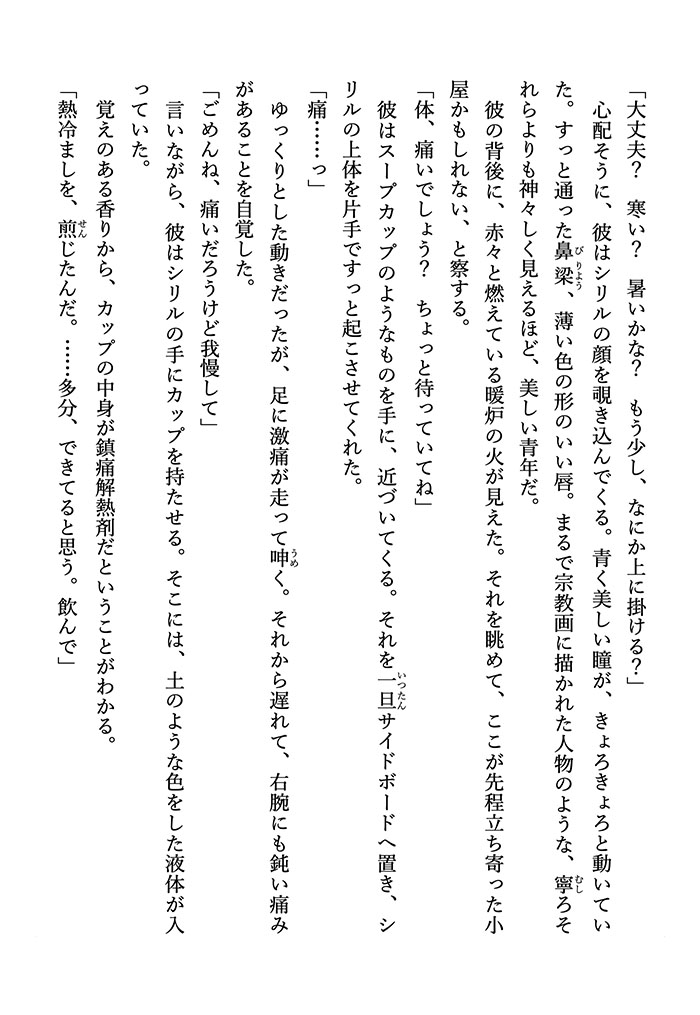 「大丈夫？　寒い？　暑いかな？　もう少し、なにか上に掛ける？」
　心配そうに、彼はシリルの顔を覗き込んでくる。青く美しい瞳が、きょろきょろと動いてい
た。すっと通った鼻梁、薄い色の形のいい唇。まるで宗教画に描かれた人物のような、寧ろそ
れらよりも神々しく見えるほど、美しい青年だ。
　彼の背後に、赤々と燃えている暖炉の火が見えた。それを眺めて、ここが先程立ち寄った小
屋かもしれない、と察する。
「体、痛いでしょう？　ちょっと待っていてね」
　彼はスープカップのようなものを手に、近づいてくる。それを一旦サイドボードへ置き、シ
リルの上体を片手ですっと起こさせてくれた。
「痛……っ」
　ゆっくりとした動きだったが、足に激痛が走って呻く。それから遅れて、右腕にも鈍い痛み
があることを自覚した。
「ごめんね、痛いだろうけど我慢して」
　言いながら、彼はシリルの手にカップを持たせる。そこには、土のような色をした液体が入
っていた。
　覚えのある香りから、カップの中身が鎮痛解熱剤だということがわかる。
「熱冷ましを、煎じたんだ。……多分、できてると思う。飲んで」